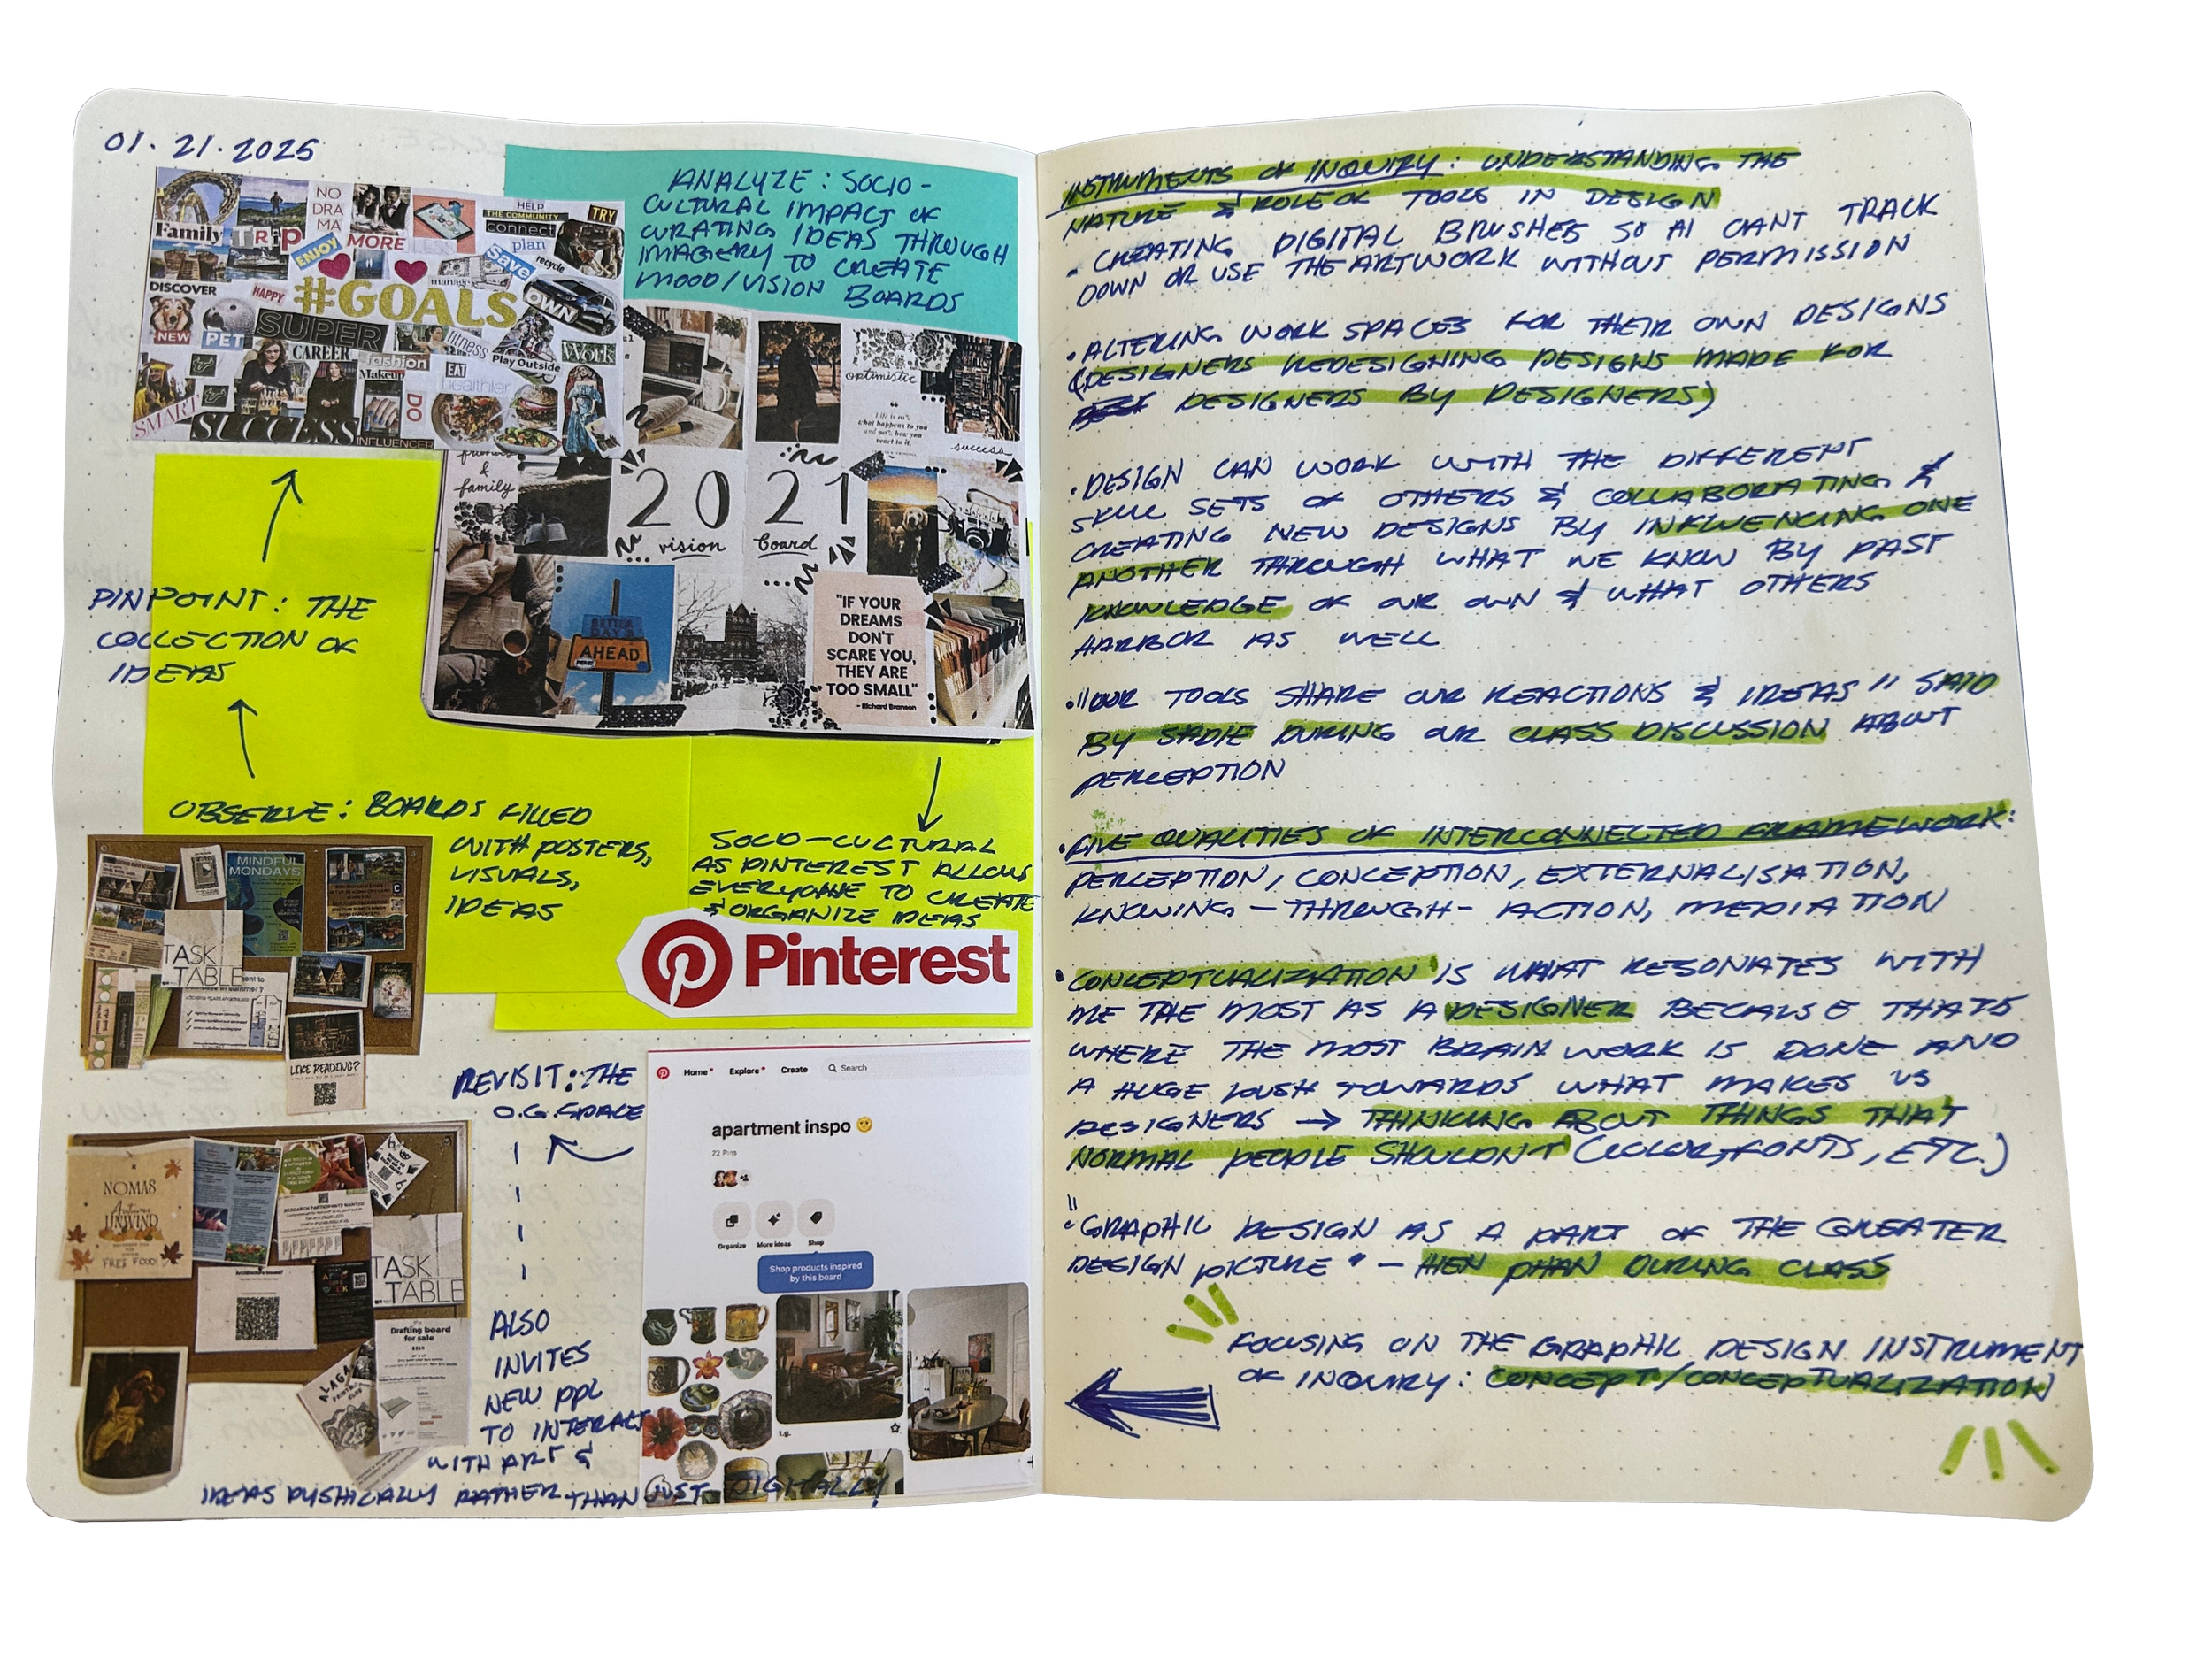 01.21.2025
ANALYZE: SOCIO-
CULTURAL IMPACT OF
CURATING IDEAS THROUGH
IMAGERY TO CREATE
MOOD/VISION BOARDS
NO
DRA
MA
HELP
THE COMMUNITY
TRY
Family
TRiP
ENJOY
MORE
connect
plan
Save
recycle
manage
DISCOVER
HAPPY
#GOALS
OWN
NEW
PET
SUPER
CAREER
fitness
Work
fashion
Makeup
Play Outside
EAT
healthier
DO
SMART
SUCCESS
INFLUENCER
optimistic
Life is 10%
what happens to you
and 90% how you
react to it.
success
friends
&
family
2021
vision board
BETTER
DAYS
AHEAD
"IF YOUR
DREAMS
DON'T
SCARE YOU,
THEY ARE
TOO SMALL"
- Richard Branson
PINPOINT: THE
COLLECTION OF
IDEAS
OBSERVE: BOARDS FILLED
WITH POSTERS,
VISUALS,
IDEAS
SOCIO-CULTURAL
AS PINTEREST ALLOWS
EVERYONE TO CREATE
& ORGANIZE IDEAS
Pinterest
MINDFUL
MONDAYS
TASK
TABLE
LIKE READING?
REVISIT: THE
O.G. SPACE
Home
Explore
Create
Search
apartment inspo
22 Pins
Organize
More ideas
Shop
Shop products inspired
by this board
t.g.
NOMAS
Autumn
UNWIND
FREE FOOD!
TASK
TABLE
Drafting board
for sale
ALSO
INVITES
NEW PPL
TO INTERACT
WITH ART &
IDEAS PYSHICALLY RATHER THAN JUST DIGITALLY!
INSTRUMENTS OF INQUIRY: UNDERSTANDING THE
NATURE & ROLE OF TOOLS IN DESIGN
- CREATING DIGITAL BRUSHES SO AI CANT TRACK
DOWN OR USE THE ARTWORK WITHOUT PERMISSION
• ALTERING WORK SPACES FOR THEIR OWN DESIGNS
(DESIGNERS REDESIGNING DESIGNS MADE FOR
DESIGNERS BY DESIGNERS)
• DESIGN CAN WORK WITH THE DIFFERENT
SKILL SETS OF OTHERS & COLLABORATING &
CREATING NEW DESIGNS BY INFLUENCING ONE
ANOTHER THROUGH WHAT WE KNOW BY PAST
KNOWLEDGE OF OUR OWN & WHAT OTHERS
HARBOR AS WELL
• "OUR TOOLS SHARE OUR REACTIONS & IDEAS" SAID
BY SADIE DURING OUR CLASS DISCUSSION ABOUT
PERCEPTION
• FIVE QUALITIES OF INTERCONNECTED FRAMEWORK:
PERCEPTION, CONCEPTION, EXTERNALISATION,
KNOWING-THROUGH-ACTION, MEDIATION
• CONCEPTUALIZATION IS WHAT RESONATES WITH
ME THE MOST AS A DESIGNER BECAUSE THATS
WHERE THE MOST BRAIN WORK IS DONE AND
A HUGE PUSH TOWARDS WHAT MAKES US
DESIGNERS → THINKING ABOUT THINGS THAT
NORMAL PEOPLE SHOULDN'T (COLOR, FONTS, ETC.)
• "GRAPHIC DESIGN AS A PART OF THE GREATER
DESIGN PICTURE" - HIEN PHAN DURING CLASS
FOCUSING ON THE GRAPHIC DESIGN INSTRUMENT
OF INQUIRY: CONCEPT/CONCEPTUALIZATION